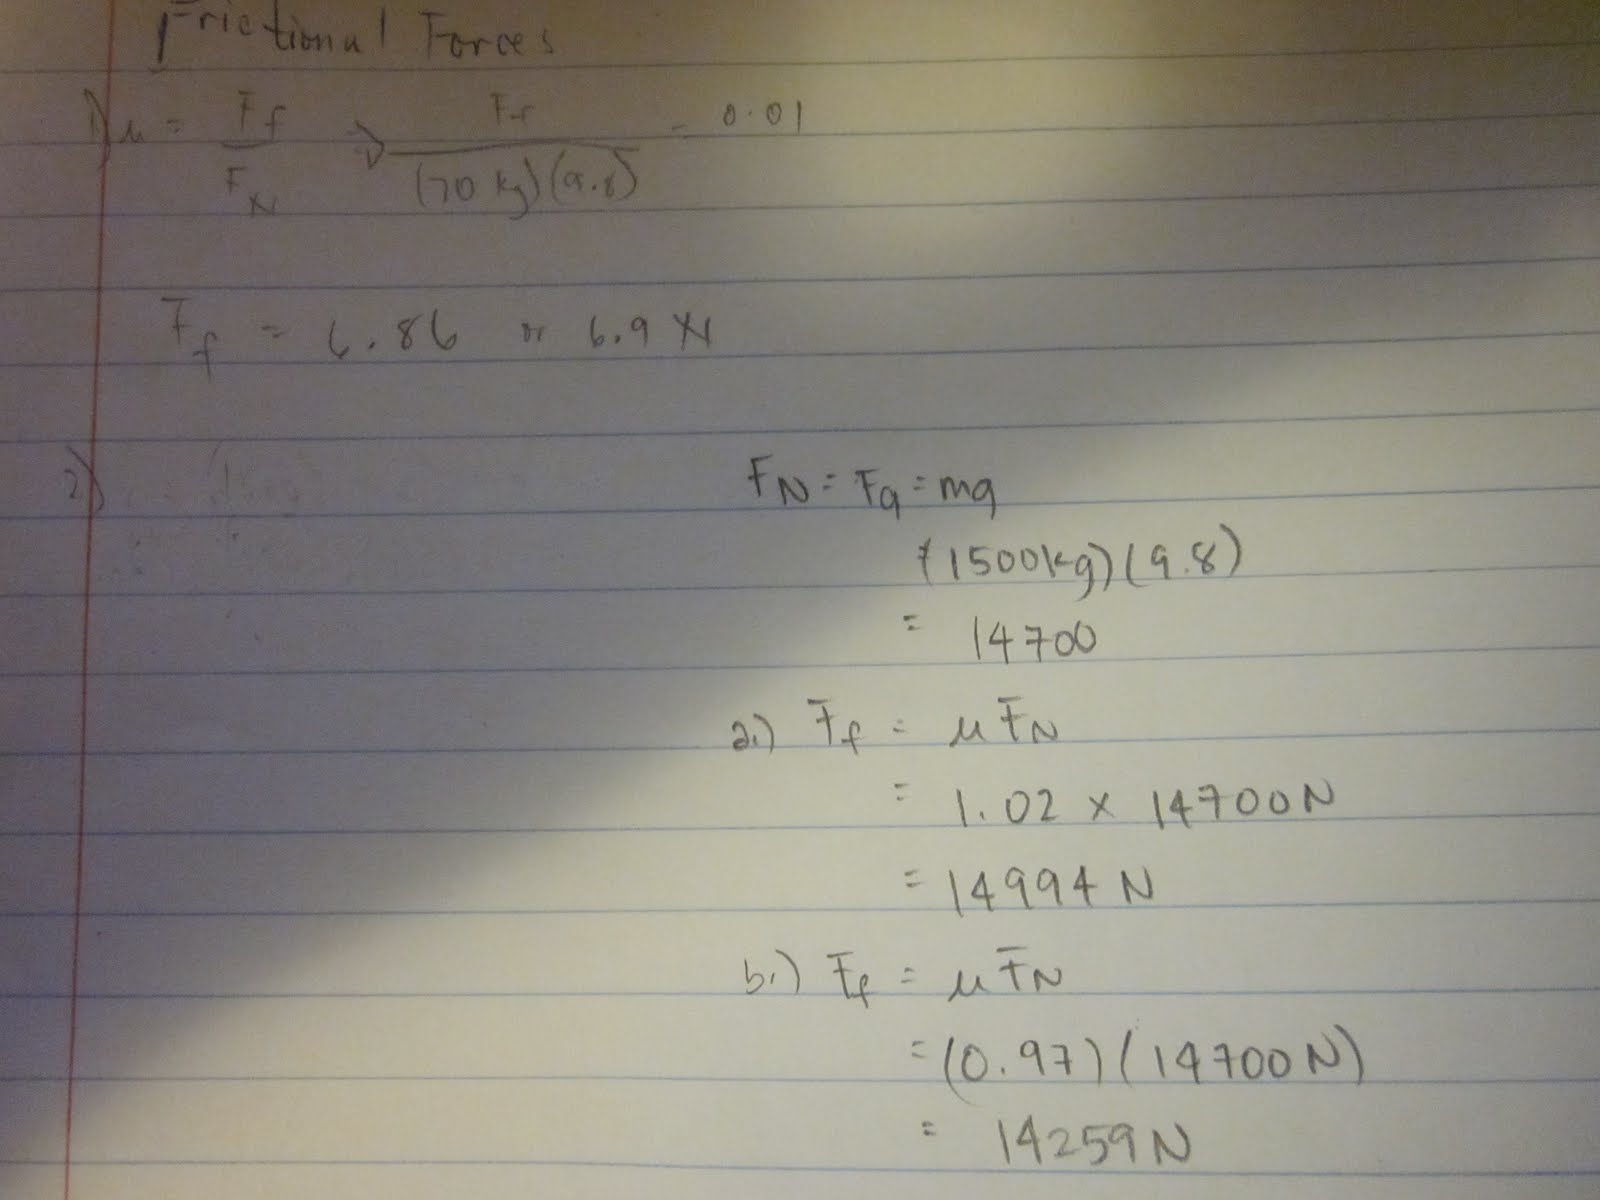 Frictional Forces
1) μ = Ff / FN → Ff / (70 kg)(9.8) = 0.01
Ff = 6.86 or 6.9 N
2)
FN = Fg = mg
(1500kg)(9.8)
= 14700
a.) Ff = μ FN
= 1.02 x 14700N
= 14994 N
b.) Ff = μ FN
= (0.97)(14700N)
= 14259N